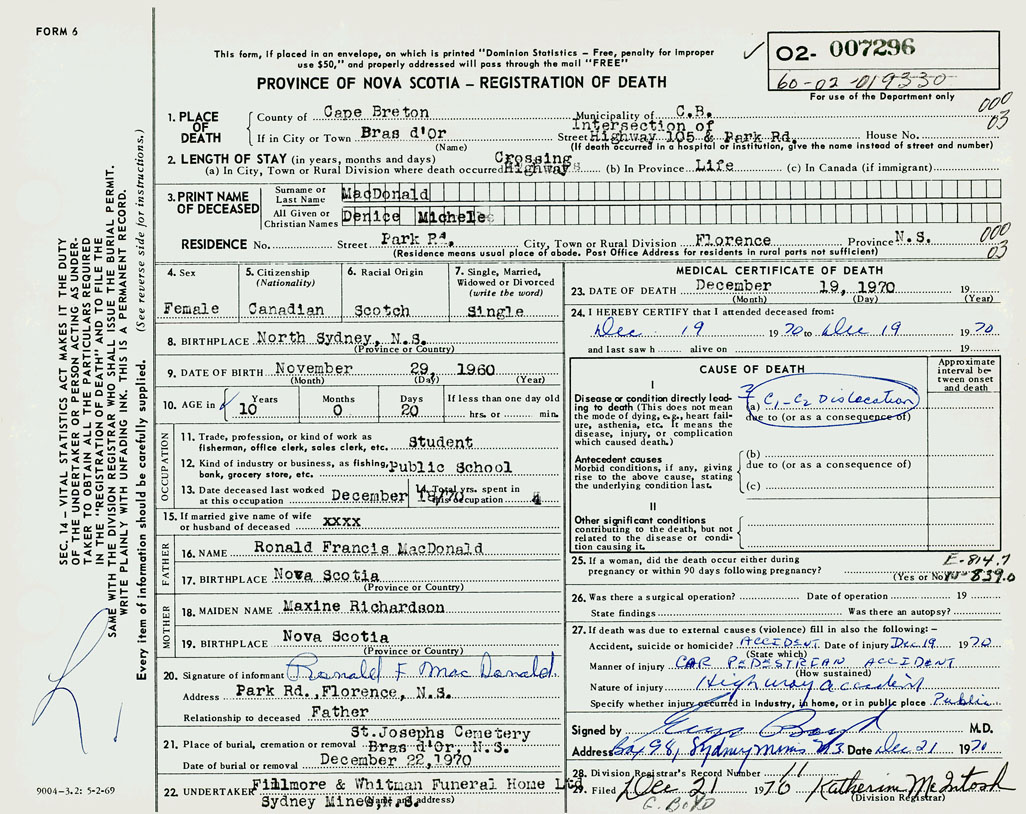 FORM 6
This form, if placed in an envelope, on which is printed "Dominion Statistics – Free, penalty for improper
use $50," and properly addressed will pass through the mail "FREE"
PROVINCE OF NOVA SCOTIA – REGISTRATION OF DEATH
✓ O2- 007296
60-02-019330
For use of the Department only
000
03
1. PLACE OF DEATH
County of Cape Breton Municipality of C.B.
If in City or Town Bras d'Or (Name) Street Intersection of Highway 105 & Park Rd. House No.
(If death occurred in a hospital or institution, give the name instead of street and number)
2. LENGTH OF STAY (in years, months and days)
(a) In City, Town or Rural Division where death occurred Crossing Highway (b) In Province Life (c) In Canada (if immigrant)
3. PRINT NAME OF DECEASED
Surname or Last Name MacDonald
All Given or Christian Names Denice Michele
RESIDENCE No. Street Park Rd. City, Town or Rural Division Florence Province N.S.
000
03
(Residence means usual place of abode. Post Office Address for residents in rural parts not sufficient)
4. Sex
Female
5. Citizenship (Nationality)
Canadian
6. Racial Origin
Scotch
7. Single, Married, Widowed or Divorced (write the word)
Single
8. BIRTHPLACE North Sydney, N.S.
(Province or Country)
9. DATE OF BIRTH November 29, 1960
(Month) (Day) (Year)
10. AGE in ✓ Years 10 Months 0 Days 20 If less than one day old hrs. or min.
OCCUPATION
11. Trade, profession, or kind of work as fisherman, office clerk, sales clerk, etc. Student
12. Kind of industry or business, as fishing, bank, grocery store, etc. Public School
13. Date deceased last worked at this occupation December 18/70 14. Total yrs. spent in this occupation 4
15. If married give name of wife or husband of deceased xxxx
FATHER
16. NAME Ronald Francis MacDonald
17. BIRTHPLACE Nova Scotia
(Province or Country)
MOTHER
18. MAIDEN NAME Maxine Richardson
19. BIRTHPLACE Nova Scotia
(Province or Country)
20. Signature of informant Ronald F MacDonald
Address Park Rd., Florence, N.S.
Relationship to deceased Father
21. Place of burial, cremation or removal St. Josephs Cemetery
Bras d'Or, N.S.
Date of burial or removal December 22, 1970
22. UNDERTAKER Fillmore & Whitman Funeral Home Ltd
Sydney Mines, N.S.
(Name and address)
MEDICAL CERTIFICATE OF DEATH
23. DATE OF DEATH December 19, 1970 19
(Month) (Day) (Year)
24. I HEREBY CERTIFY that I attended deceased from:
Dec. 19 1970 to Dec 19 1970
and last saw h alive on 19
CAUSE OF DEATH
Approximate interval between onset and death
I
Disease or condition directly leading to death (This does not mean the mode of dying, e.g., heart failure, asthenia, etc. It means the disease, injury, or complication which caused death.)
(a) C1-C2 Dislocation
due to (or as a consequence of)
Antecedent causes
Morbid conditions, if any, giving rise to the above cause, stating the underlying condition last.
(b)
due to (or as a consequence of)
(c)
II
Other significant conditions
contributing to the death, but not related to the disease or condition causing it.
25. If a woman, did the death occur either during pregnancy or within 90 days following pregnancy? (Yes or No)
E-814.7
N-839.0
26. Was there a surgical operation? Date of operation 19
State findings Was there an autopsy?
27. If death was due to external causes (violence) fill in also the following:–
Accident, suicide or homicide? ACCIDENT Date of injury Dec 19 1970
(State which)
Manner of injury CAR PEDESTRIAN ACCIDENT
(How sustained)
Nature of injury Highway accident
Specify whether injury occurred in industry, in home, or in public place Public
Signed by Boyd M.D.
Address Box 98, Sydney Mines N.S. Date Dec 21 1970
28. Division Registrar's Record Number 11
29. Filed Dec 21 1970 Katherine McIntosh
(Division Registrar)
G. BOYD
SEC. 14 – VITAL STATISTICS ACT MAKES IT THE DUTY
OF THE UNDERTAKER OR PERSON ACTING AS UNDER-
TAKER TO OBTAIN ALL THE PARTICULARS REQUIRED
IN THE "REGISTRATION OF DEATH" AND TO FILE THE
SAME WITH THE DIVISION REGISTRAR WHO SHALL ISSUE THE BURIAL PERMIT.
WRITE PLAINLY WITH UNFADING INK. THIS IS A PERMANENT RECORD.
Every item of information should be carefully supplied. (See reverse side for instructions.)
9004-3.2: 5-2-69